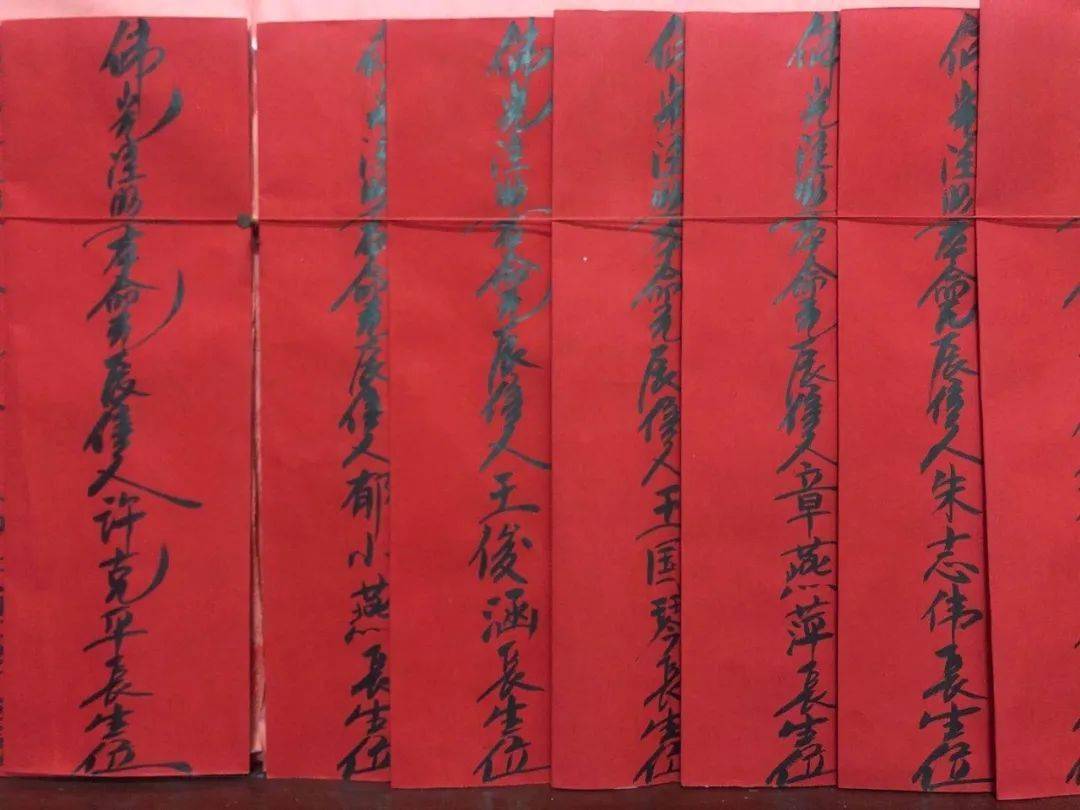 佛光注照本命元辰信人许克平長生位
佛光注照本命元辰信人郁小燕長生位
佛光注照本命元辰信人王俊涵長生位
佛光注照本命元辰信人王国琴長生位
佛光注照本命元辰信人章燕萍長生位
佛光注照本命元辰信人朱志伟長生位